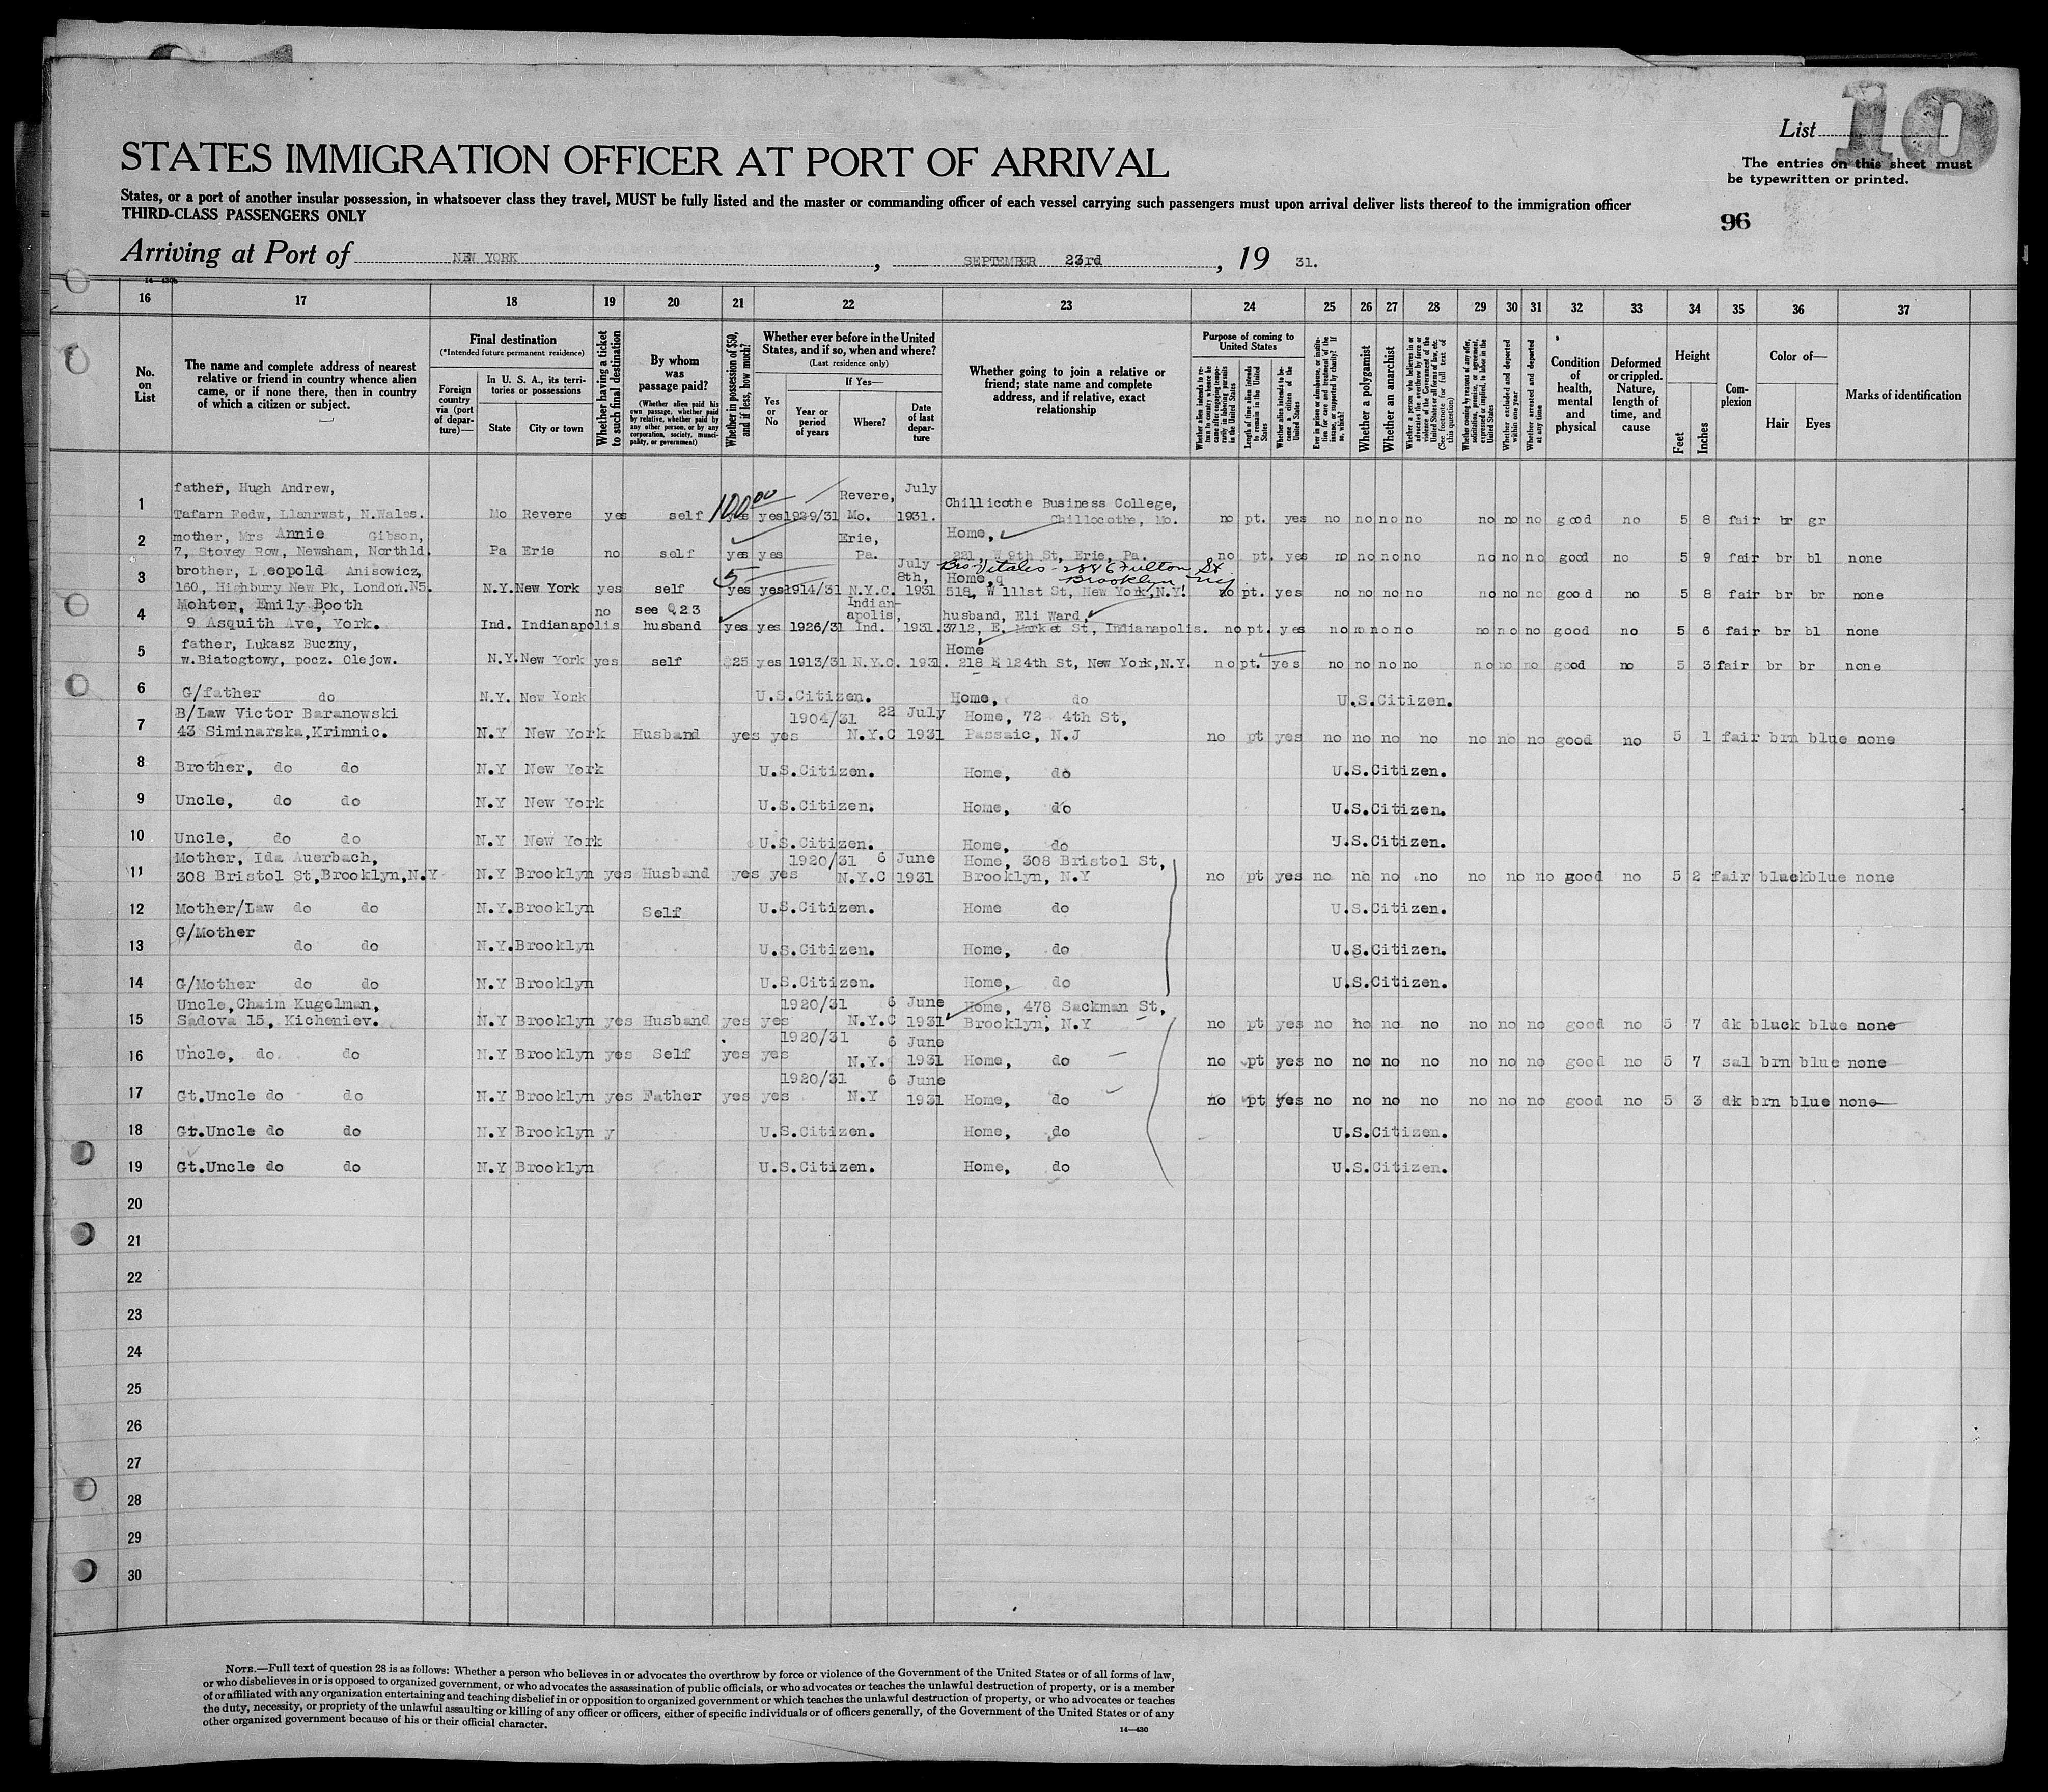 10
List
STATES IMMIGRATION OFFICER AT PORT OF ARRIVAL
The entries on this sheet must
be typewritten or printed.
States, or a port of another insular possession, in whatsoever class they travel, MUST be fully listed and the master or commanding officer of each vessel carrying such passengers must upon arrival deliver lists thereof to the immigration officer
THIRD-CLASS PASSENGERS ONLY
96
Arriving at Port of NEW YORK, SEPTEMBER 23rd, 19 31.
16 17 18 19 20 21 22 23 24 25 26 27 28 29 30 31 32 33 34 35 36 37
No. on List
The name and complete address of nearest relative or friend in country whence alien came, or if none there, then in country of which a citizen or subject.
Final destination
(*Intended future permanent residence)
Foreign country via (port of departure)—
In U. S. A., its territories or possessions
State
City or town
Whether having a ticket to such final destination
By whom was passage paid?
(Whether alien paid his own passage, whether paid by relative, whether paid by any other person, or by any corporation, society, municipality, or government)
Whether in possession of $50, and if less, how much?
Whether ever before in the United States, and if so, when and where?
(Last residence only)
Yes or No
If Yes—
Year or period of years
Where?
Date of last departure
Whether going to join a relative or friend; state name and complete address, and if relative, exact relationship
Purpose of coming to United States
Length of time alien intends to remain in the United States
Whether alien intends to become a citizen of the United States
Whether a polygamist
Whether an anarchist
Whether excluded and deported within one year
Whether arrested and deported at any time
Condition of health, mental and physical
Deformed or crippled. Nature, length of time, and cause
Height
Feet
Inches
Complexion
Color of—
Hair
Eyes
Marks of identification
1 father, Hugh Andrew, Tafarn Fedw, Llanrwst, N.Wales. Mo Revere yes self 100.00 yes yes 1929/31 Revere, Mo. July 1931. Chillicothe Business College, Chillocothe, Mo. no pt. yes no no no no no no no good no 5 8 fair br gr
2 mother, Mrs Annie Gibson, 7, Stovey Row, Newsham, Northld. Pa Erie no self yes yes Erie, Pa. Home, 221, W 9th St, Erie, Pa. no pt. yes no no no no no no no good no 5 9 fair br bl none
Bro Vitales - 2886 Fulton St Brooklyn NY
3 brother, Leopold Anisowicz, 160, Highbury New Pk, London.N5. N.Y. New York yes self 5 yes yes 1914/31 N.Y.C. July 8th, 1931 Home, 518, W 111st St, New York, N.Y. no pt. yes no no no no no no no good no 5 8 fair br br none
4 Mohter, Emily Booth 9 Asquith Ave, York. Ind. Indianapolis no see Q23 husband yes yes 1926/31 Indianapolis, Ind. 1931. husband, Eli Ward, 3712, E. Market St, Indianapolis. no pt. yes no no no no no no no good no 5 6 fair br bl none
5 father, Lukasz Buczny, w.Biatogtowy, pocz. Olejow. N.Y. New York yes self $25 yes 1913/31 N.Y.C. 1931. Home 218 E 124th St, New York, N.Y. no pt. yes no no no no no no no good no 5 3 fair br br none
6 G/father do N.Y. New York U.S.Citizen. Home, do U.S.Citizen.
7 B/Law Victor Baranowski 43 Siminarska, Krimnic. N.Y New York Husband yes yes 1904/31 N.Y.C 22 July 1931 Home, 72 4th St, Passaic, N.J no pt yes no no no no no no no good no 5 1 fair brn blue none
8 Brother, do do N.Y New York U.S.Citizen. Home, do U.S.Citizen.
9 Uncle, do do N.Y New York U.S.Citizen. Home, do U.S.Citizen.
10 Uncle, do do N.Y New York U.S.Citizen. Home, do U.S.Citizen.
11 Mother, Ida Auerbach, 308 Bristol St, Brooklyn, N.Y N.Y Brooklyn yes Husband yes yes 1920/31 N.Y.C 6 June 1931 Home, 308 Bristol St, Brooklyn, N.Y no pt yes no no no no no no no good no 5 2 fair black blue none
12 Mother/Law do do N.Y. Brooklyn Self U.S.Citizen. Home do U.S.Citizen.
13 G/Mother do do N.Y. Brooklyn U.S.Citizen. Home, do U.S.Citizen.
14 G/Mother do do N.Y Brooklyn U.S.Citizen. Home, do U.S.Citizen.
15 Uncle, Chaim Kugelman, Sadova 15, Kicheniev. N.Y Brooklyn yes Husband yes yes 1920/31 N.Y.C 6 June 1931 Home, 478 Sackman St, Brooklyn, N.Y no pt yes no no no no no no no good no 5 7 dk black blue none
16 Uncle, do do N.Y Brooklyn yes Self yes yes 1920/31 N.Y.C 6 June 1931 Home, do no pt yes no no no no no no no good no 5 7 sal brn blue none
17 Gt.Uncle do do N.Y Brooklyn yes Father yes yes 1920/31 N.Y 6 June 1931 Home, do no pt yes no no no no no no no good no 5 3 dk brn blue none
18 Gt.Uncle do do N.Y Brooklyn y U.S.Citizen. Home, do U.S.Citizen.
19 Gt.Uncle do do N.Y Brooklyn U.S.Citizen. Home, do U.S.Citizen.
20
21
22
23
24
25
26
27
28
29
30
NOTE.—Full text of question 28 is as follows: Whether a person who believes in or advocates the overthrow by force or violence of the Government of the United States or of all forms of law,
or who disbelieves in or is opposed to organized government, or who advocates the assassination of public officials, or who advocates or teaches the unlawful destruction of property, or is a member
of or affiliated with any organization entertaining and teaching disbelief in or opposition to organized government or which teaches the unlawful destruction of property, or who advocates or teaches
the duty, necessity, or propriety of the unlawful assaulting or killing of any officer or officers, either of specific individuals or of officers generally, of the Government of the United States or of any
other organized government because of his or their official character.
14—430